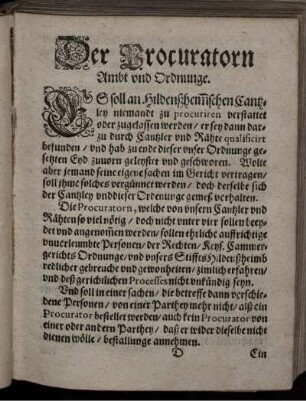 Der Procuratorn
Ambt vnd Ordnunge.
ES soll an Hildenßheimischen Cantz-
ley niemandt zu procuriren verstattet
oder zugelassen werden / er sey dann dar-
zu durch Cantzler vnd Rähte qualificirt
befunden / vnd hab zu ende dieser vnser Ordnunge ge-
setzten Eyd zuuorn geleystet vnd geschworen. Wolte
aber jemand seine eigene sachen im Gericht vertragen /
soll ihme solches vergünnet werden / doch derselbe sich
der Cantzley vnd dieser Ordenunge gemeß verhalten.
Die Procuratorn, welche von vnsern Cantzler vnd
Rähten so viel nötig / doch nicht unter vier sollen beey-
det vnd angenommen werden / sollen ehrliche auffrichtige
vnuerleumbte Personen / der Rechten / Keys. Cammer-
gerichts Ordnunge / vnd vnsers Stiffts Hildenßheim
redlicher gebreuche vnd gewonheiten / zimlich erfahren /
vnd deß gerichtlichen Processes nicht vnkündig seyn.
Vnd soll in einer sachen / die betreffe dann verschie-
dene Personen / von einer Parthey mehr nicht / alß ein
Procurator bestellet werden / auch kein Procurator von
einer oder andern Parthey / daß er wider dieselbe nicht
dienen wölle / bestallunge annehmen.
D Ein